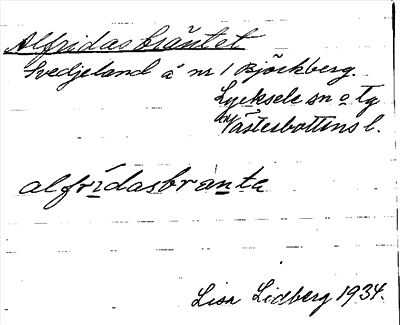 Alfridasbräntet
Svedjeland å nr 1 Björkberg.
Lycksele sn o tg
Västerbottens l.
alfrídasbranta
Lisa Lidberg 1934.